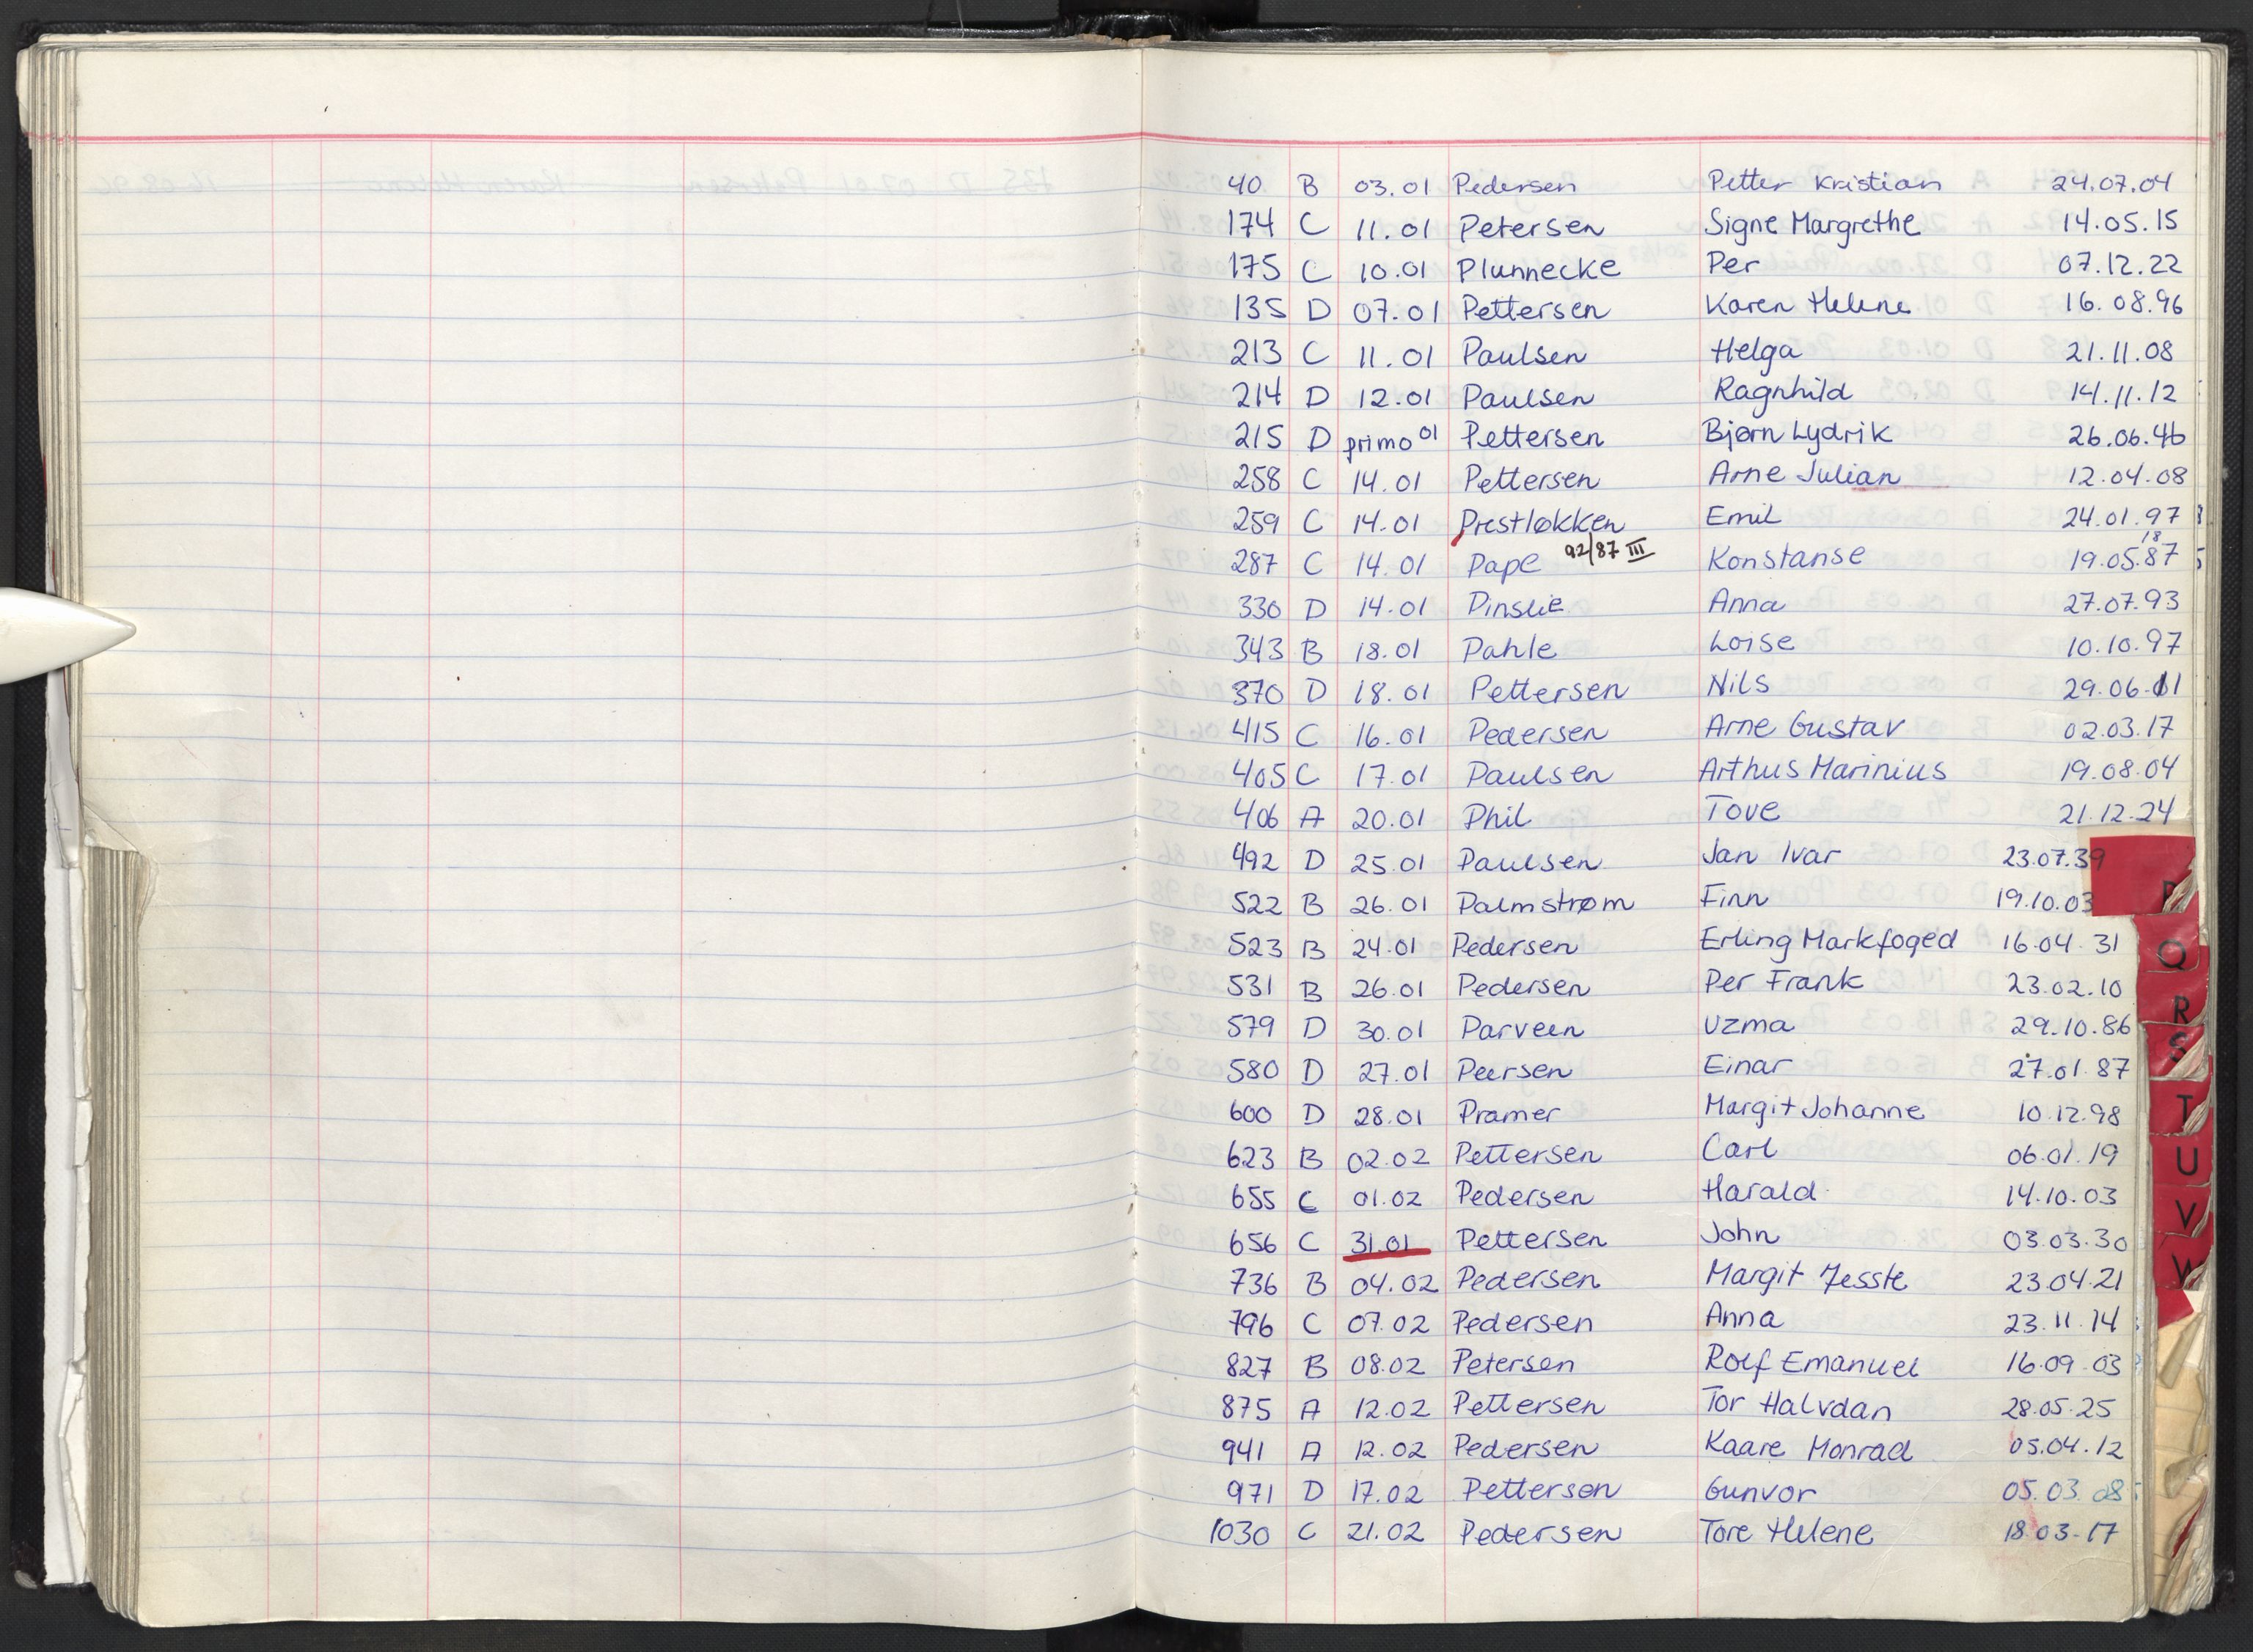 40 B 03.01 Pedersen Petter Kristian 24.07.04
174 C 11.01 Petersen Signe Margrethe 14.05.15
175 C 10.01 Plunnecke Per 07.12.22
135 D 07.01 Pettersen Karen Helene 16.08.96
213 C 11.01 Paulsen Helga 21.11.08
214 D 12.01 Paulsen Ragnhild 14.11.12
215 D primo 01 Pettersen Bjørn Lydrik 26.06.46
258 C 14.01 Pettersen Arne Julian 12.04.08
259 C 14.01 Prestløkken Emil 24.01.97
287 C 14.01 Pape 92/87 III Konstanse 19.05.87 18
330 D 14.01 Pinslie Anna 27.07.93
343 B 18.01 Pahle Loise 10.10.97
370 D 18.01 Pettersen Nils 29.06.01
415 C 16.01 Pedersen Arne Gustav 02.03.17
405 C 17.01 Paulsen Arthus Marinius 19.08.04
406 A 20.01 Phil Tove 21.12.24
492 D 25.01 Paulsen Jan Ivar 23.07.39
522 B 26.01 Palmstrøm Finn 19.10.03
P
523 B 24.01 Pedersen Erling Markfoged 16.04.31
Q
531 B 26.01 Pedersen Per Frank 23.02.10
R
579 D 30.01 Parveen Uzma 29.10.86
S
580 D 27.01 Peersen Einar 27.01.87
600 D 28.01 Pramer Margit Johanne 10.12.98
T
623 B 02.02 Pettersen Carl 06.01.19
U
655 C 01.02 Pedersen Harald 14.10.03
V
656 C 31.01 Pettersen John 03.03.30
W
736 B 04.02 Pedersen Margit Jesste 23.04.21
796 C 07.02 Pedersen Anna 23.11.14
827 B 08.02 Petersen Rolf Emanuel 16.09.03
875 A 12.02 Pettersen Tor Halvdan 28.05.25
941 A 12.02 Pedersen Kaare Monrad 05.04.12
971 D 17.02 Pettersen Gunvor 05.03.08
1030 C 21.02 Pedersen Tore Helene 18.03.17